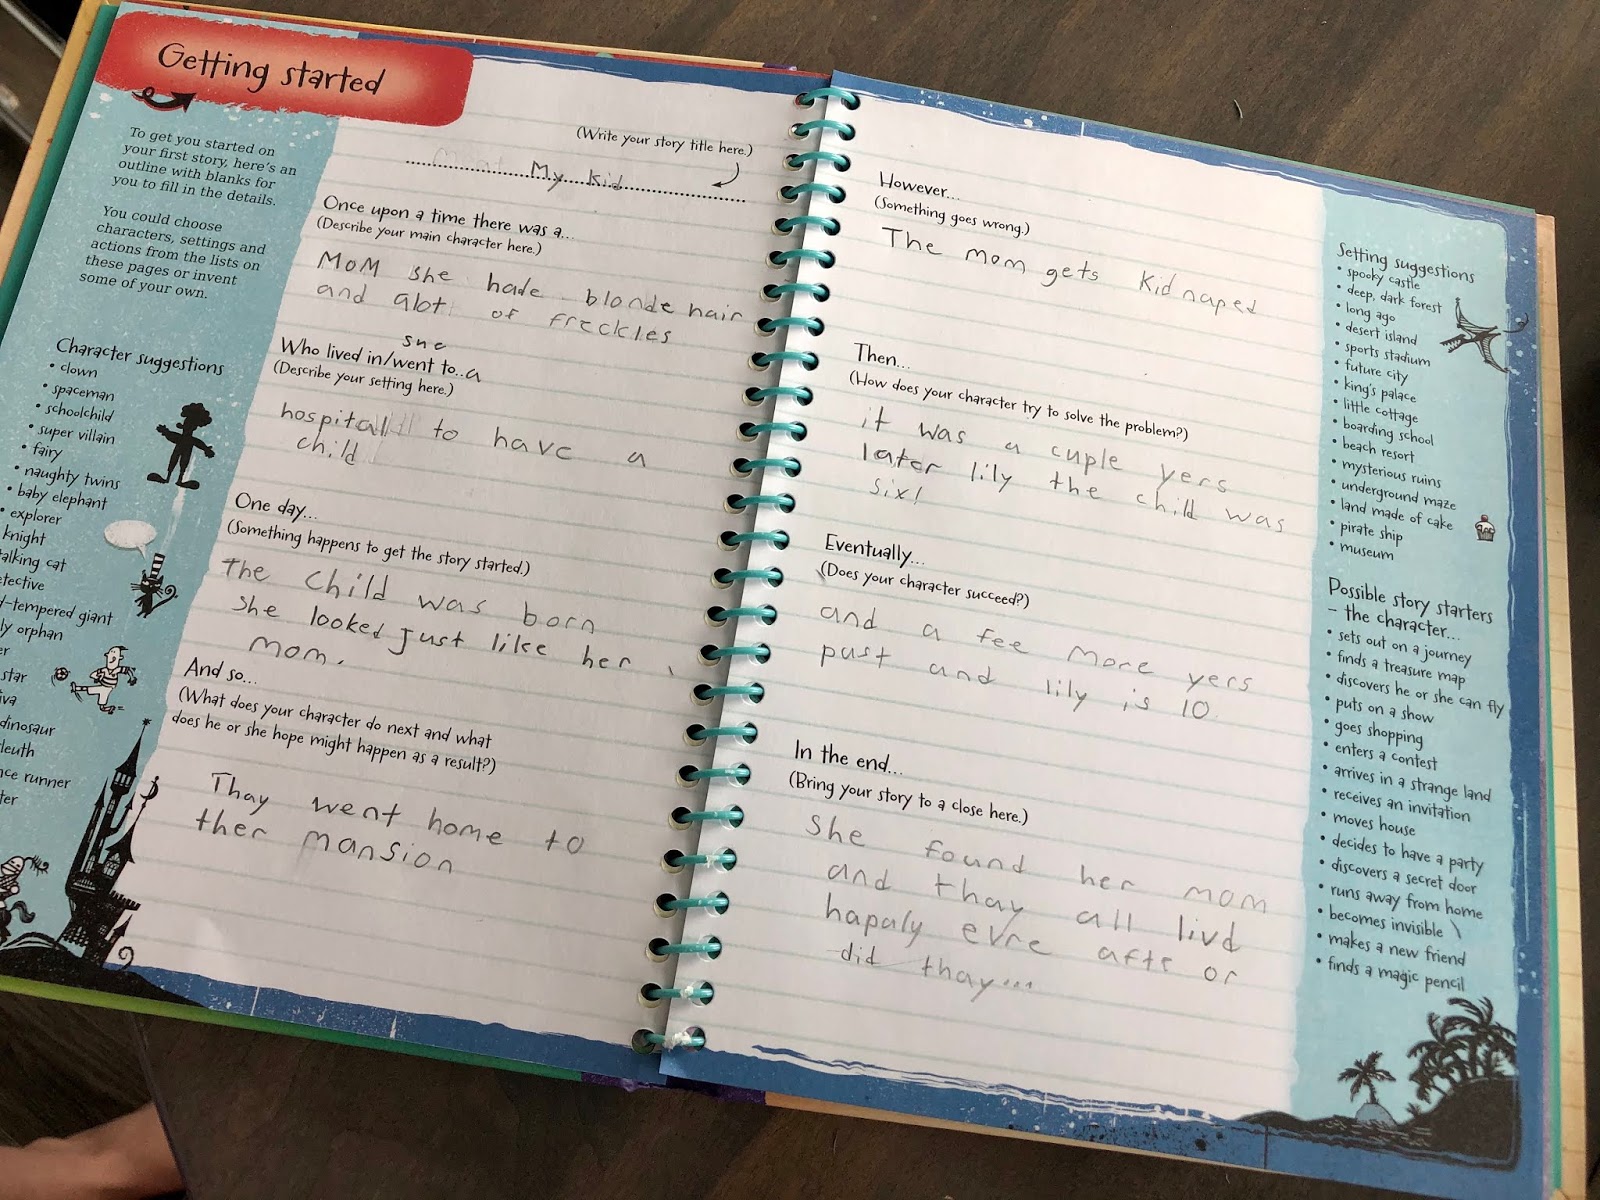 Getting started
To get you started on
your first story, here's an
outline with blanks for
you to fill in the details.
You could choose
characters, settings and
actions from the lists on
these pages or invent
some of your own.
Character suggestions
• clown
• spaceman
• schoolchild
• super villain
• fairy
• naughty twins
• baby elephant
• explorer
knight
alking cat
etective
d-tempered giant
ly orphan
er
star
iva
dinosaur
leuth
nce runner
ter
(Write your story title here.)
My kid
Once upon a time there was a...
(Describe your main character here.)
MoM she hade blonde hair
and alot of freckles
she
Who lived in/went to..a
(Describe your setting here.)
hospital to have a
child
One day...
(Something happens to get the story started.)
The child was born
she looked just like her
mom.
And so...
(What does your character do next and what
does he or she hope might happen as a result?)
Thay went home to
ther mansion
However...
(Something goes wrong.)
The mom gets kidnaped
Then...
(How does your character try to solve the problem?)
it was a cuple yers
later lily the child was
six!
Eventually...
(Does your character succeed?)
and a fee more yers
past and lily is 10
In the end...
(Bring your story to a close here.)
She found her mom
and thay all livd
hapaly evre afte or
did thay...
Setting suggestions
• spooky castle
• deep, dark forest
• long ago
• desert island
• sports stadium
• future city
• king's palace
• little cottage
• boarding school
• beach resort
• mysterious ruins
• underground maze
• land made of cake
• pirate ship
• museum
Possible story starters
– the character...
• sets out on a journey
• finds a treasure map
• discovers he or she can fly
• puts on a show
• goes shopping
• enters a contest
• arrives in a strange land
• receives an invitation
• moves house
• decides to have a party
• discovers a secret door
• runs away from home
• becomes invisible
• makes a new friend
• finds a magic pencil